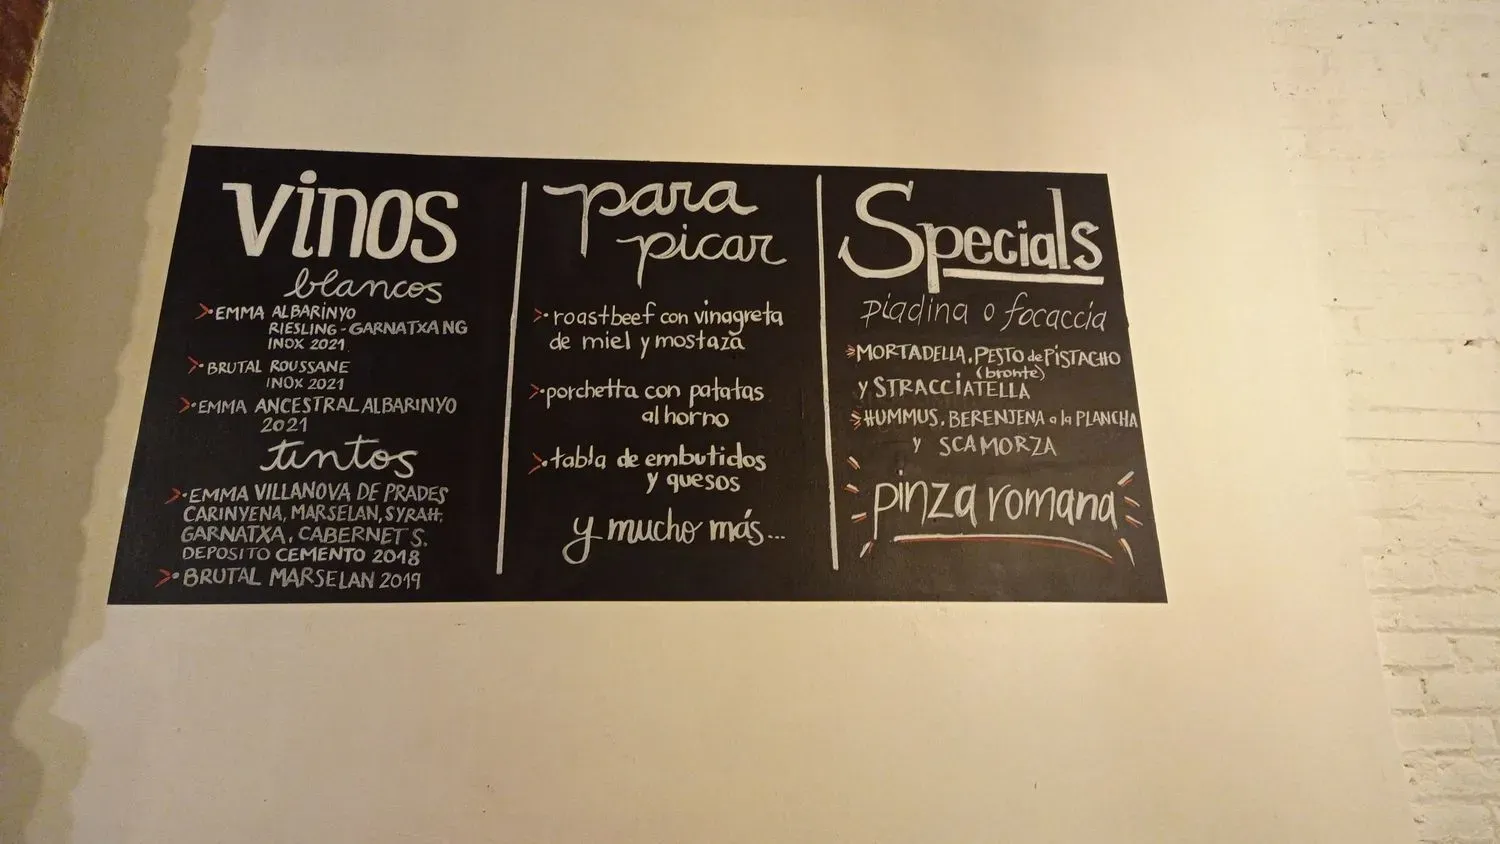 vinos
blancos
EMMA ALBARINYO
RIESLING-GARNATXA NG
INOX 2021
BRUTAL ROUSSANE
INOX 2021
EMMA ANCESTRAL ALBARINYO
2021
tintos
EMMA VILLANOVA DE PRADES
CARINYENA, MARSELAN, SYRAH,
GARNATXA, CABERNET S.
DEPOSITO CEMENTO 2018
BRUTAL MARSELAN 2019
para
picar
roastbeef con vinagreta
de miel y mostaza
porchetta con patatas
al horno
tabla de embutidos
y quesos
y mucho más...
Specials
piadina o focaccia
MORTADELLA, PESTO de PISTACHO
(bronte)
Y STRACCIATELLA
HUMMUS, BERENJENA a la PLANCHA
Y SCAMORZA
pinza romana